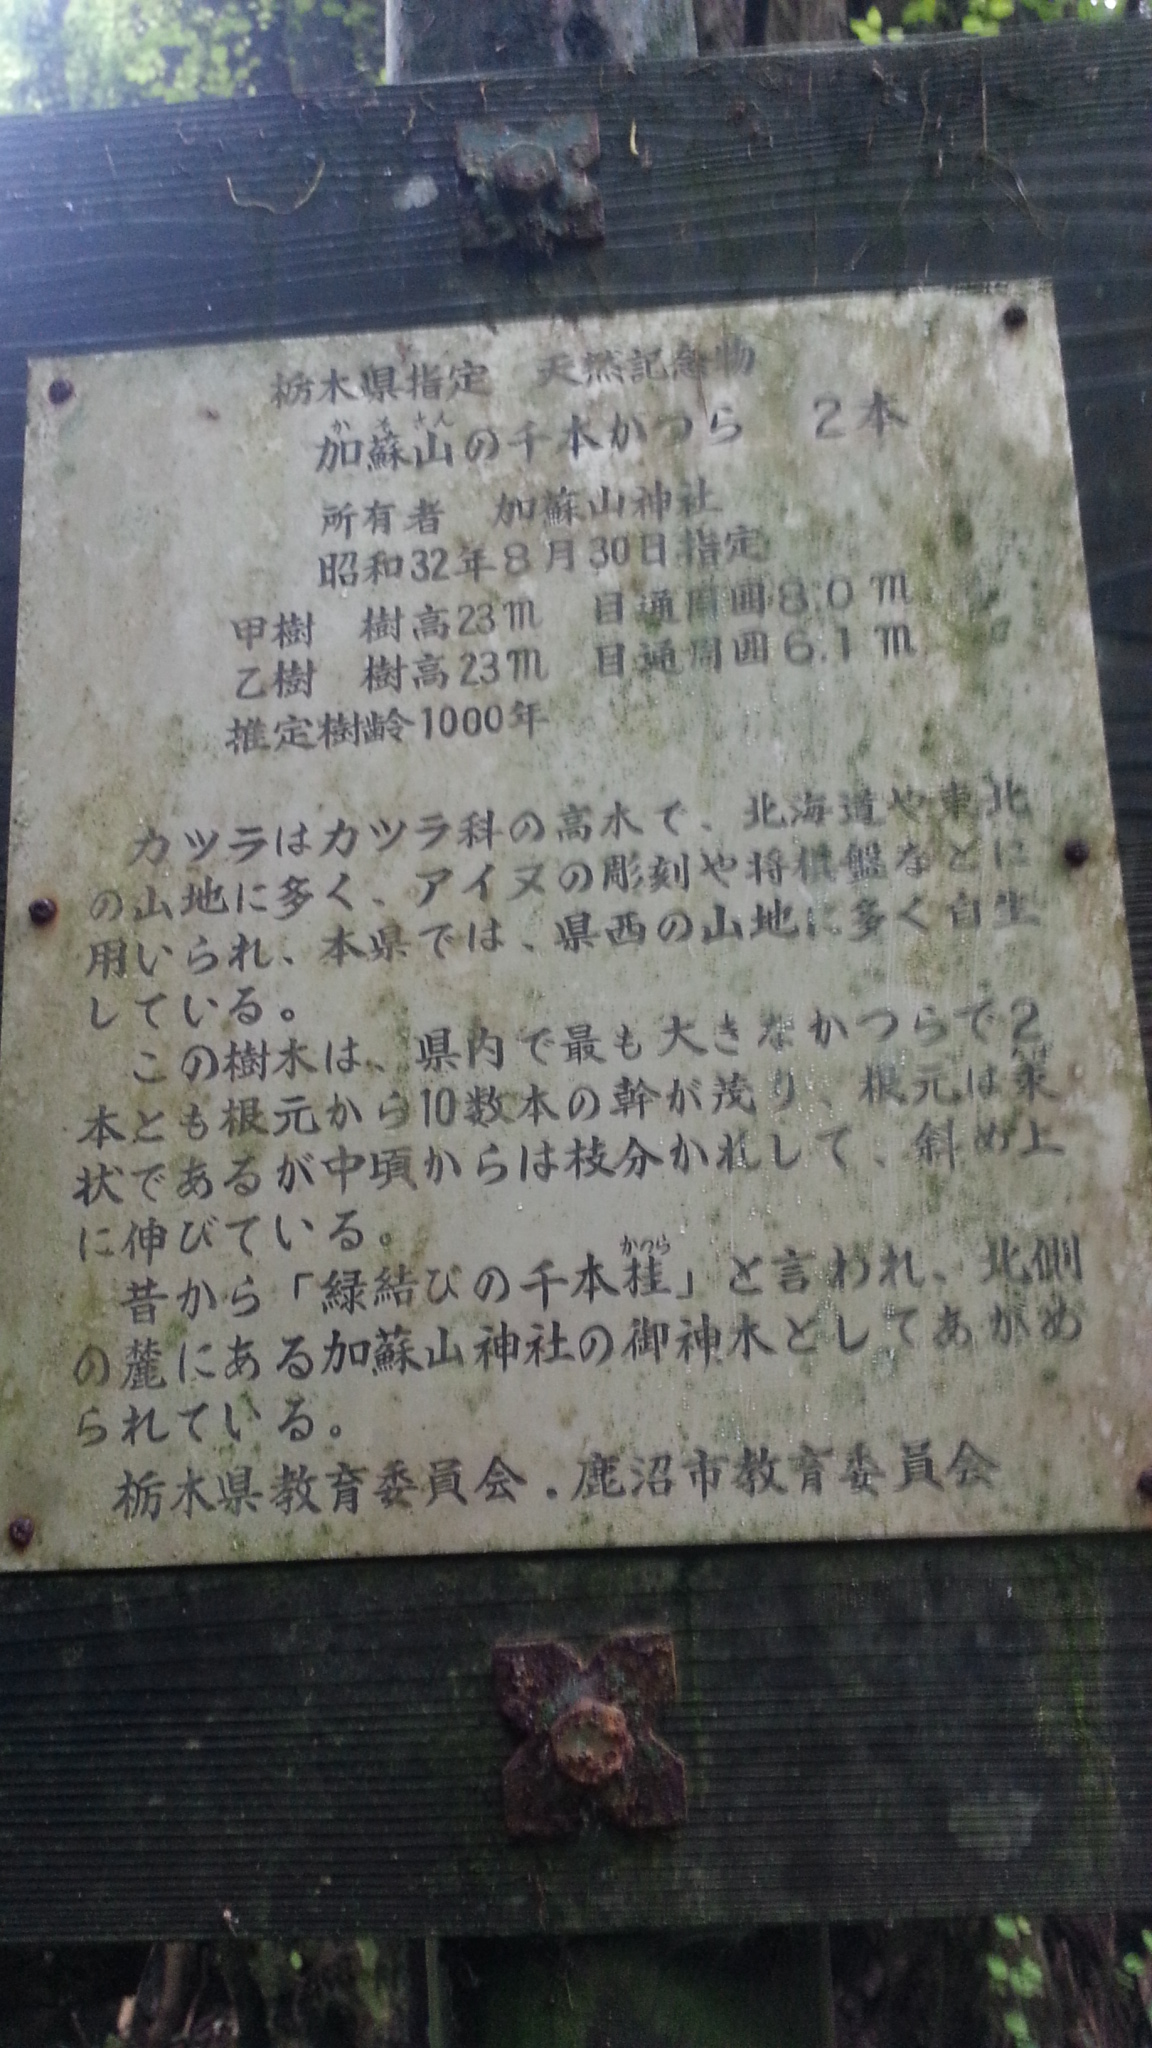 栃木県指定　天然記念物
加蘇山の千本かつら　2本
所有者　加蘇山神社
昭和32年8月30日指定
甲樹　樹高23m　目通周囲8.0m
乙樹　樹高23m　目通周囲6.1m
推定樹齢1000年
カツラはカツラ科の高木で、北海道や東北
の山地に多く、アイヌの彫刻や将棋盤などに
用いられ、本県では、県西の山地に多く自生
している。
この樹木は、県内で最も大きなかつらで2
本とも根元から10数本の幹が茂り、根元は束
状であるが中頃からは枝分かれして、斜め上
に伸びている。
昔から「緑結びの千本桂」と言われ、北側
の麓にある加蘇山神社の御神木としてあがめ
られている。
栃木県教育委員会．鹿沼市教育委員会